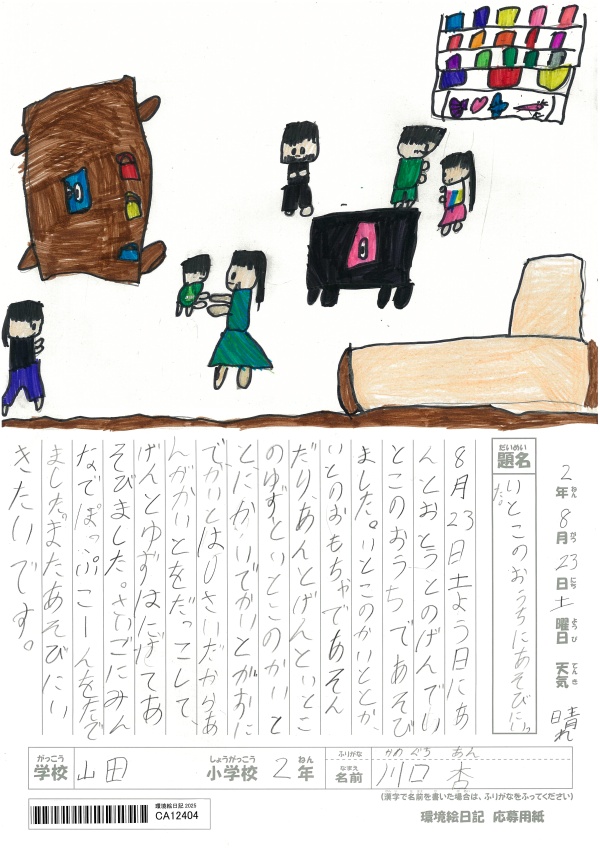 2年8月23日土曜日 天気 晴れ
ねん がつ にち ようび てんき
だいめい
題名
いとこのおうちにあそびにいっ
た。
8月23日土よう日にあ
んとおとうとのげんでい
とこのおうちであそび
ました。いとこのかいととか、
いとのおもちゃであそん
だり、あんとげんといとこ
のゆずといとこのかいと
とにかいでかいとがおに
でかいとは0さいだからあ
んがかいとをだっこして、
げんとゆずはにげてあ
そびました。さいごにみん
なでぽっぷこーんをたべ
ました。またあそびにい
きたいです。
がっこう しょうがっこう ねん
学校 山田 小学校 2年
ふりがな かわぐち あん
なまえ
名前 川口 杏
(漢字で名前を書いた場合は、ふりがなをふってください)
環境絵日記 2025
CA12404
環境絵日記 応募用紙